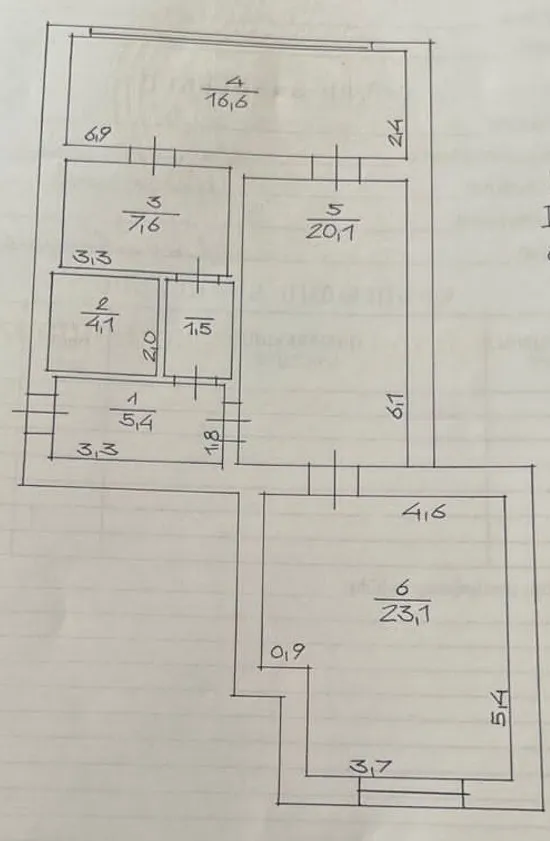 4
16,6
6,9
2,4
3
7,6
3,3
5
20,1
2
4,1
2,0
1,5
6,1
1
5,4
3,3
1,8
4,6
6
23,1
0,9
5,4
3,7